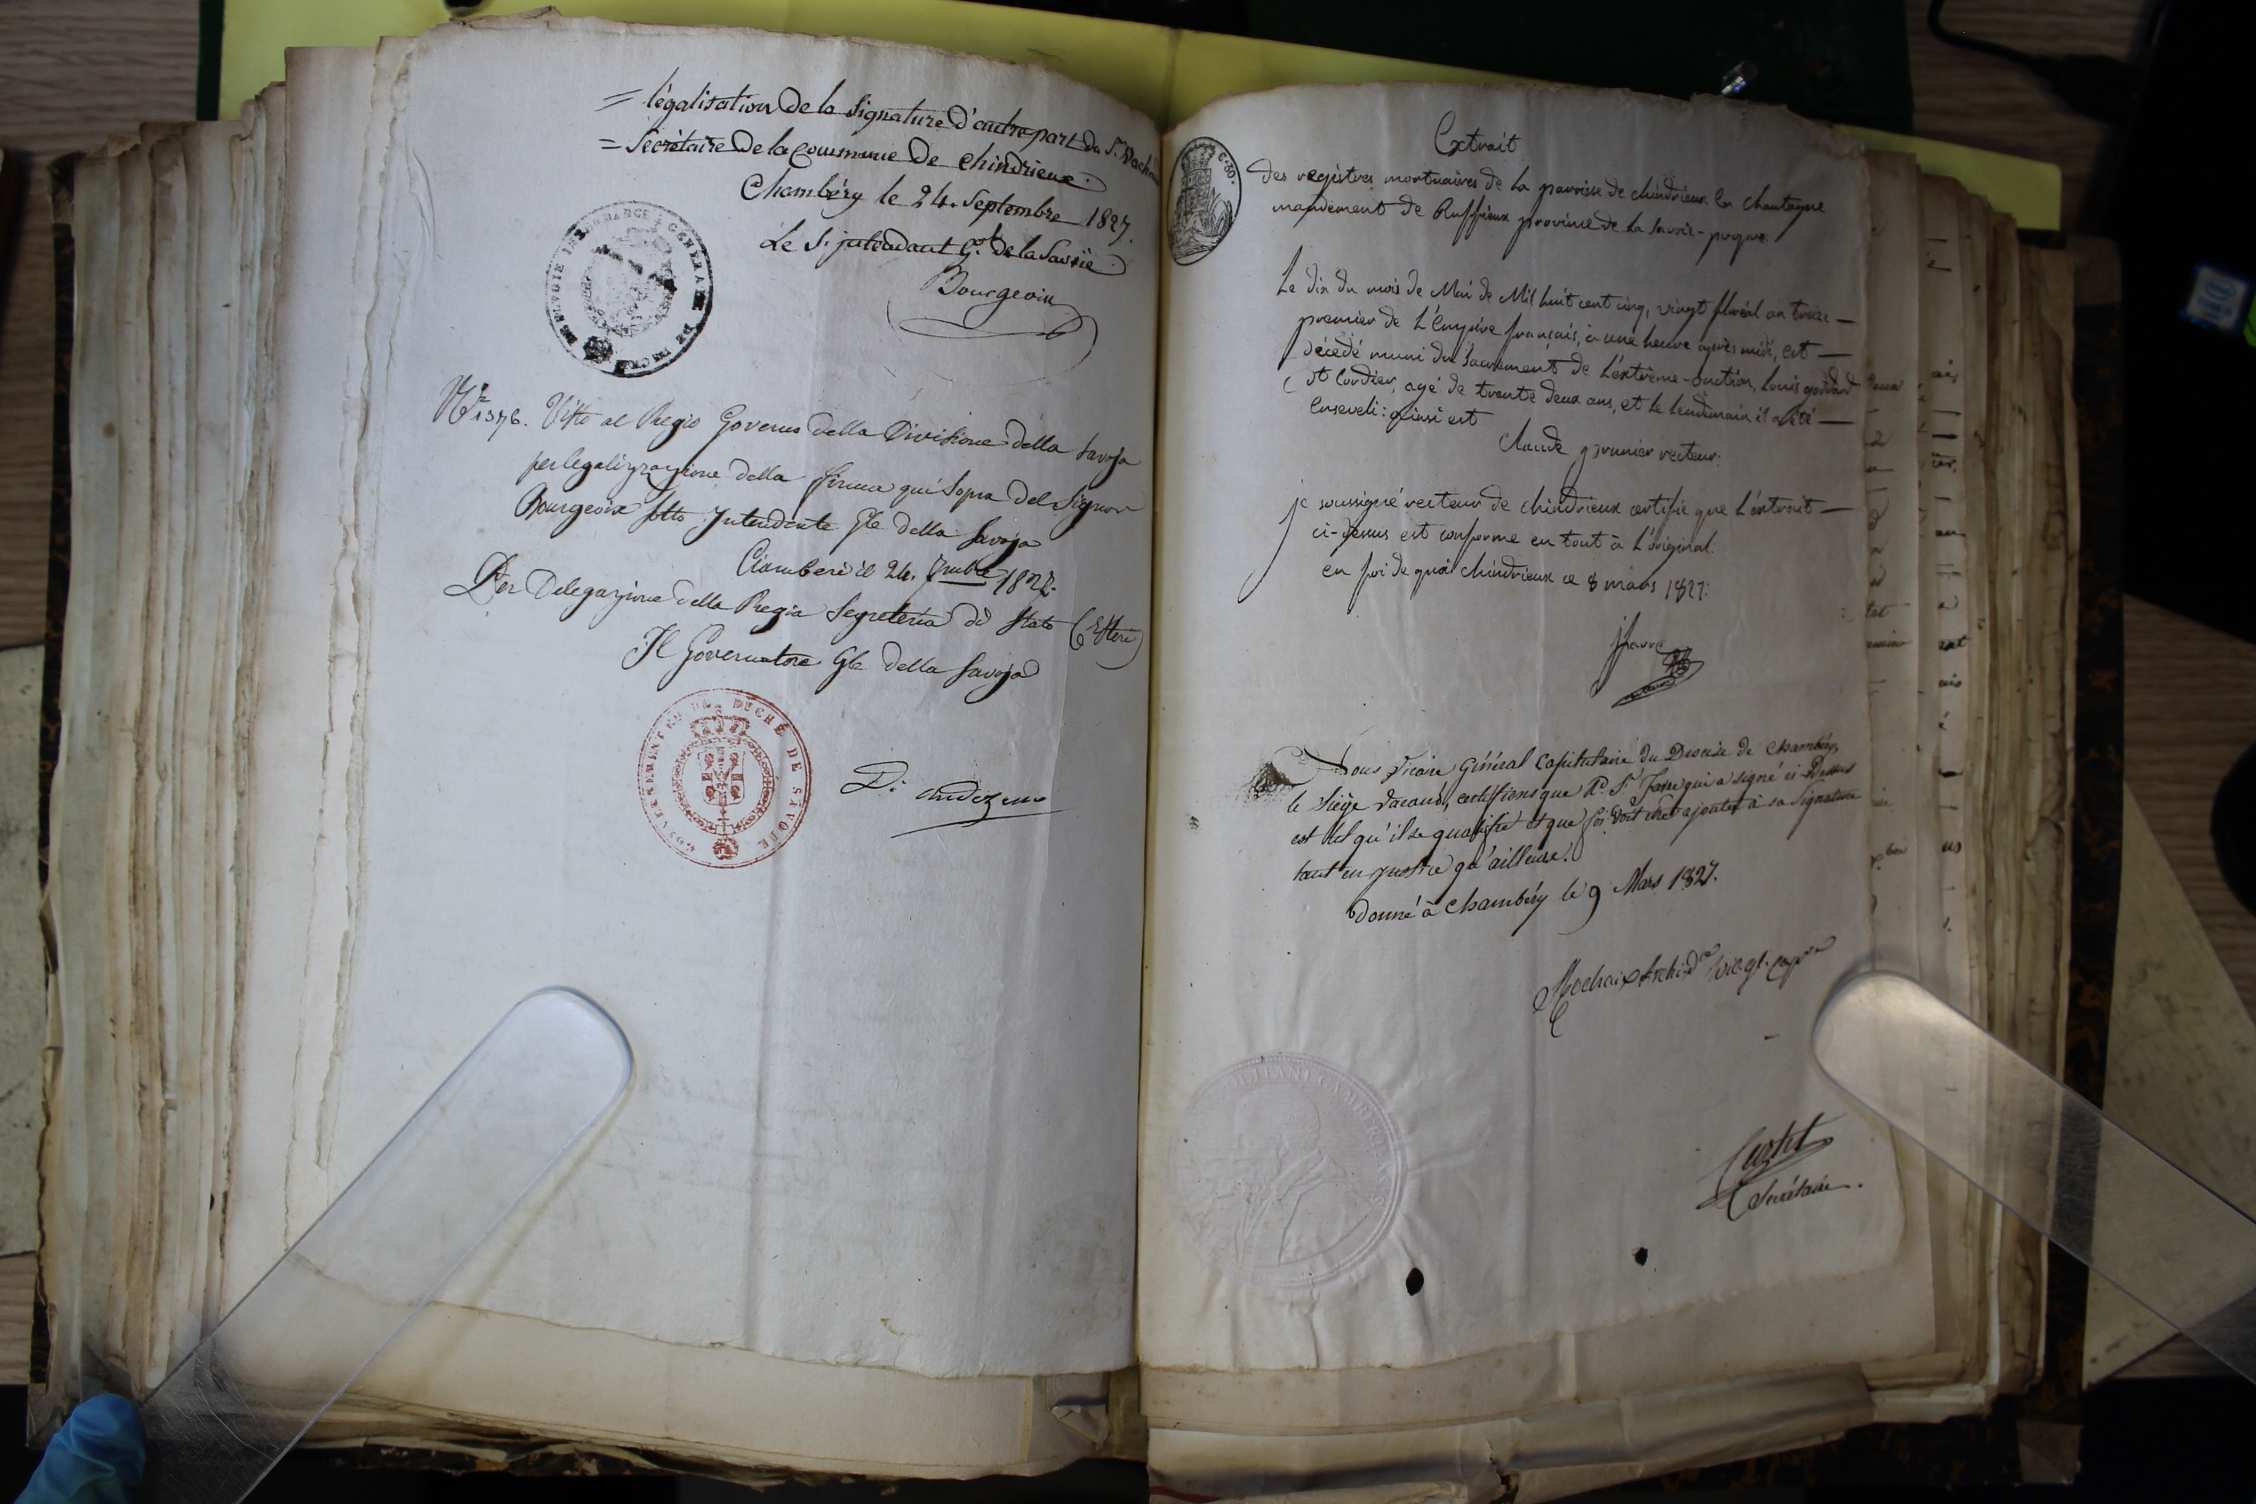 = légalisation de la signature d'autre part du Sr. Vach
= Secrétaire de la Commune de Chindrieux.
Chambéry le 24. Septembre 1827.
Le S. intendant Gal. de la Savoie
Bourgeois
INTENDANCE GENERALE DU DUCHE DE SAVOIE
N° 1376. Visto al Regio Governo della Divisione della Savoja
per legalizzazione della firma qui sopra del Signor
Bourgeois sotto Intendente Gle della Savoja
Ciamberì il 24. 7mbre 1827.
Per Delegazione della Regia Segreteria di Stato (Esteri)
Il Governatore Gle della Savoja
GOUVERNEMENT DU DUCHÉ DE SAVOIE
D'
C. 30.
Extrait
des registres mortuaires de la paroisse de chindrieux en chautagne
mandement de Ruffieux province de la Savoie-propre.
Le dix du mois de Mai de Mil huit cent cinq, vingt floréal an treize —
premier de L'Empire français, à une heure après midi, est —
décédé muni du Sacrement de L'extrême-onction, louis goddard
dt Cordier, agé de trente deux ans, et le lendemain il a été —
Enseveli: ainsi est
Claude grunier recteur.
je soussigné recteur de chindrieux certifie que L'extrait —
ci-dessus est conforme en tout à L'original.
en foi de quoi chindrieux ce 8 mars 1827.
Nous Vicaire Général Capitulaire du Diocèse de Chambéry,
le siège vacant, certifions que Rd. Sr. Favre qui a signé ci-Dessus
est tel qu'il se qualifie et que foi doit être ajoutée à sa Signature
tant en justice qu'ailleurs.
Donné à Chambéry le 9 Mars 1827.
Rochaix Archide Vic. gl. Capre
Secrétaire.